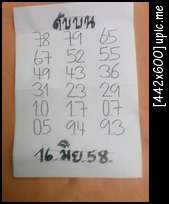 ดับบน
78 79 65
67 52 55
49 43 36
31 23 29
10 17 07
05 94 93
16 มิย 58
[442x600] upic.me